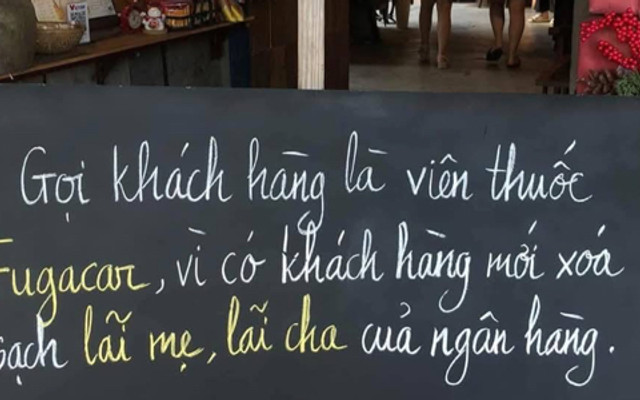 Gọi khách hàng là viên thuốc
Fugacar, vì có khách hàng mới xoá
sạch lãi mẹ, lãi cha của ngân hàng.